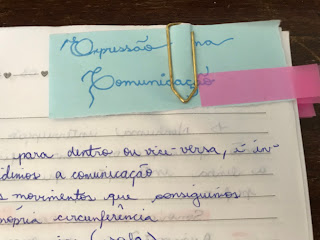 Expressão na
Comunicação
para dentro ou vice-versa, é in-
dimos a comunicação
s movimentos que conseguimos
própria circunferência
(sala)